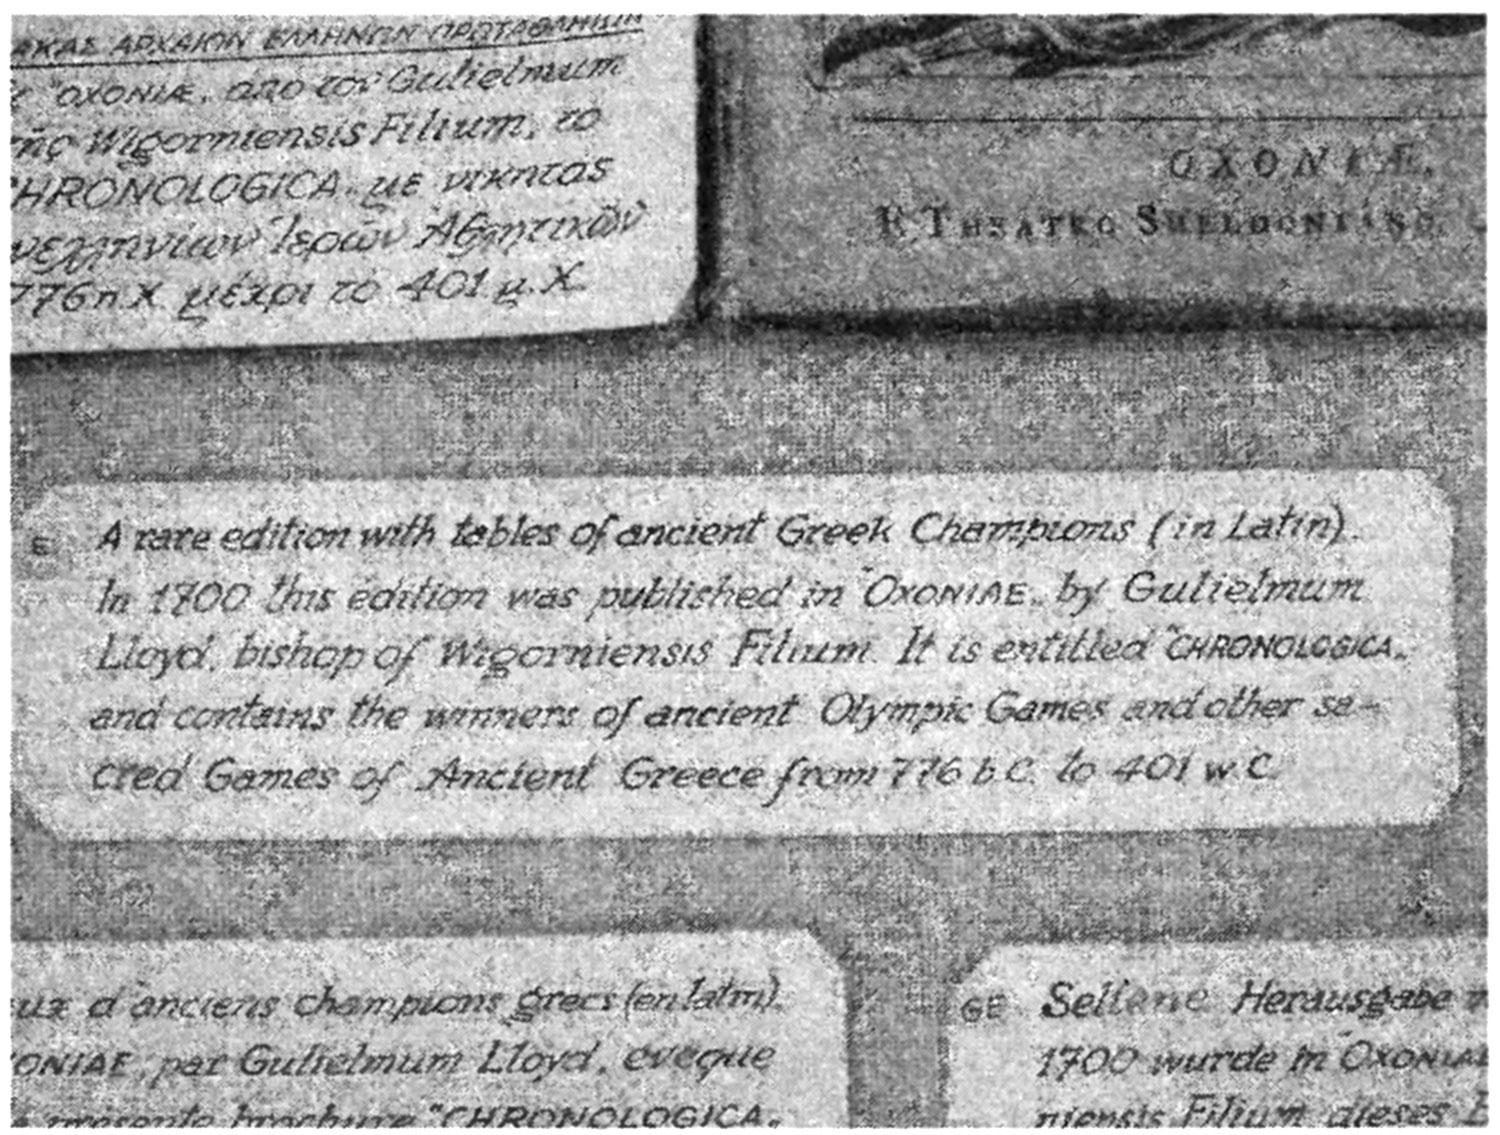 ΑΚΑΣ ΑΡΧΑΙΩΝ ΕΛΛΗΝΩΝ ΠΡΩΤΑΘΛΗΤΩΝ
"OXONIÆ„ απο τον Gulielmum
της Wigorniensis Filium, το
CHRONOLOGICA„ με νικητας
νελληνίων Ἱερῶν Ἀθλητικῶν
776 π.Χ. μέχρι το 401 μ.Χ.
OXONIÆ,
E THEATRO SHELDONIANO.
E. A rare edition with tables of ancient Greek Champions (in Latin).
In 1700 this edition was published in "OXONIAE„ by Gulielmum
Lloyd, bishop of Wigorniensis Filium. It is entitled "CHRONOLOGICA„
and contains the winners of ancient Olympic Games and other sa-
cred Games of Ancient Greece from 776 b.C. to 401 w.C.
aux d'anciens champions grecs (en latin).
ONIAE„ par Gulielmum Lloyd, eveque
presente brochure "CHRONOLOGICA„
GE Seltene Herausgabe
1700 wurde in "OXONIAE
niensis Filium dieses